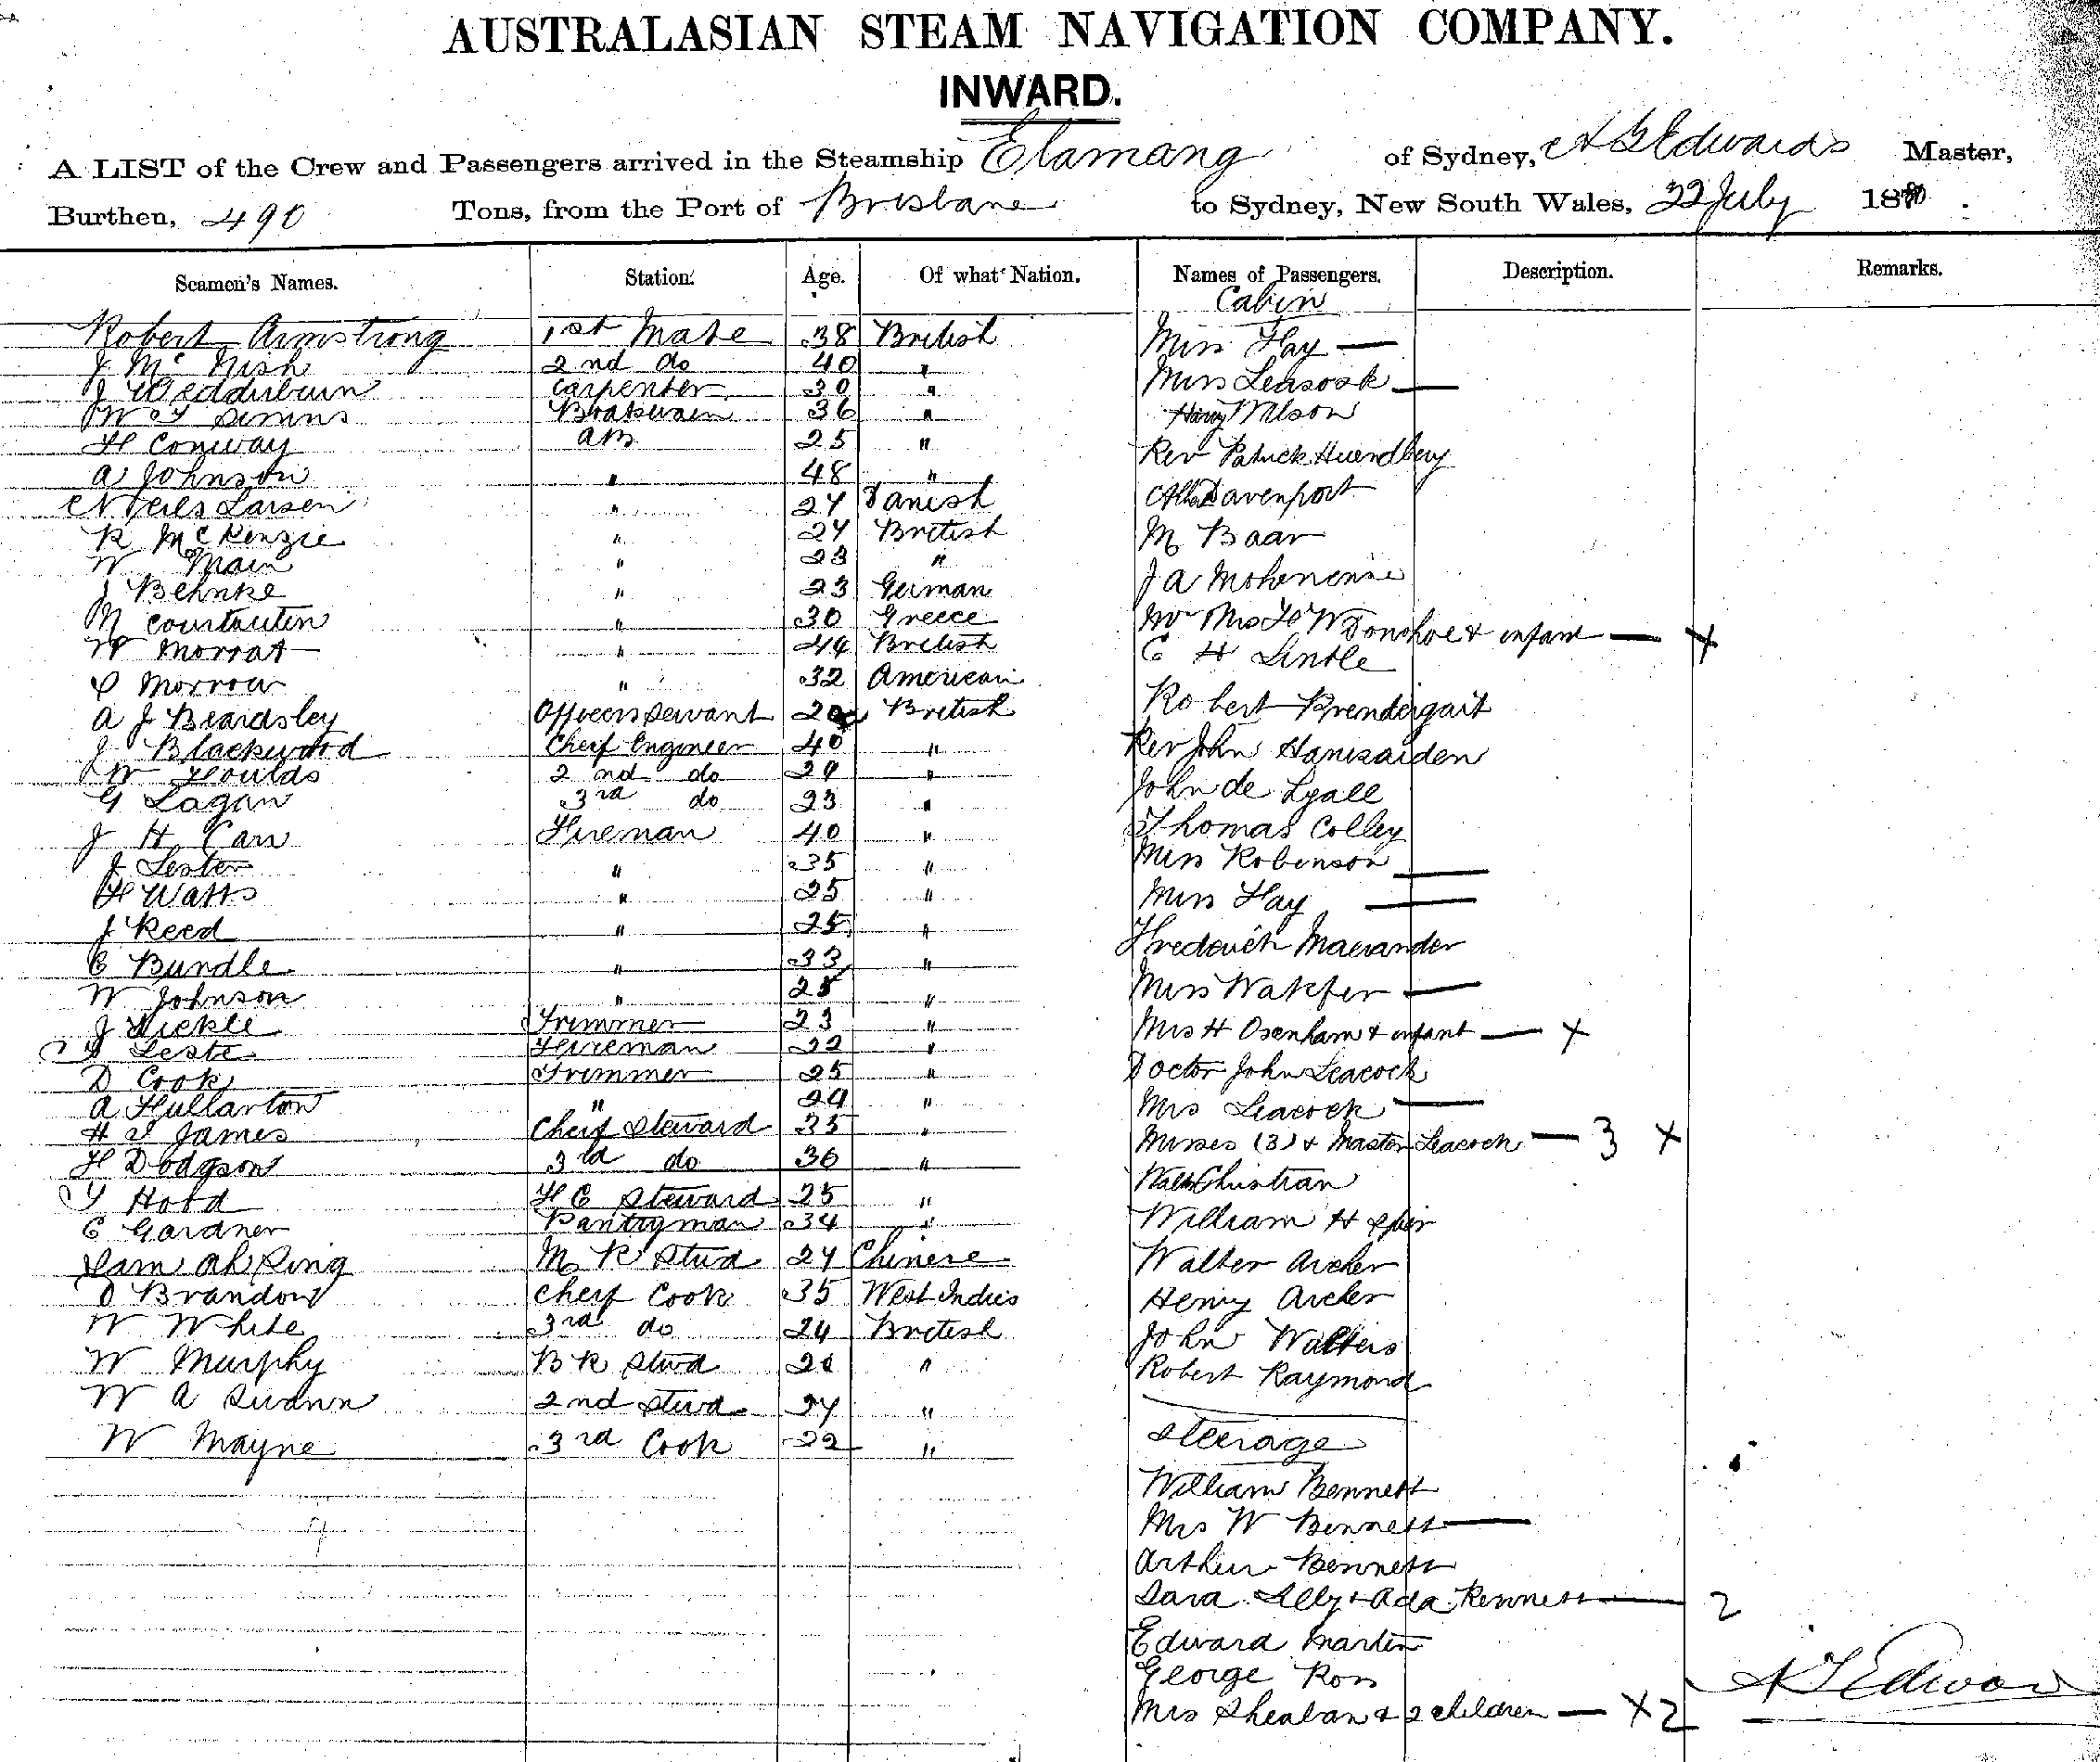 AUSTRALASIAN STEAM NAVIGATION COMPANY.
INWARD.
A LIST of the Crew and Passengers arrived in the Steamship Elamang of Sydney, Edwards Master,
Burthen, 490 Tons, from the Port of Brisbane to Sydney, New South Wales, 22 July 18
Seamen's Names. Station. Age. Of what Nation. Names of Passengers. Description. Remarks.
Cabin
Robert Armstrong 1st Mate 38 British Miss Hay —
J McNish 2nd do 40 " Miss —
J Wedderburn Carpenter 30 "
W Simms Boatswain 36 " Wilson
H Conway AB 25 " Rev Patrick
A Johnson " 48 " Davenport
Neils Larsen " 27 Danish M Baar
R McKenzie " 24 British J A
W Main " 23 " Mr Mrs Donohoe & infant — x
J Behnke " 23 German C H Lintle
M " 30 Greece Robert Prendergait
W Morrat " 44 British Rev John
Morrow " 32 American John de Lyall
A J Beardsley Officers Servant British Thomas Colley
J Blackwood Cheif Engineer 40 " Miss Robinson —
W Foulds 2nd do 29 " Miss Hay —
G Lagan 3rd do 23 " Frederick
J H Carr Fireman 40 " Miss —
J Lester " 35 " Mrs H Osenham & infant — x
H Watts " 25 " Doctor John Leacock
J Reed " 25 " Mrs Leacock —
C Bundle " 33 " Misses (3) & Master Leacock — 3 x
W Johnson " 25 " Christian
J Trimmer 23 " William H
Leste Fireman 22 " Walter Archer
D Cook Trimmer 25 " Henry Archer
A Fullarton " 29 " John Walters
H James Cheif Steward 35 " Robert Raymond
H Dodgson 3rd do 36 " Steerage
Hood F C Steward 25 " William Bennett
C Gardner Pantryman 34 " Mrs W Bennett —
Sam Ah Sing M R Stwd 24 Chinese Arthur Bennett
D Brandon Cheif Cook 35 West Indies Sara Lilly & Ada Bennett — 2
W White 3rd do 24 British Edward Martin
W Murphy B R Stwd " George Ross
W A Swann 2nd Stwd 24 " Mrs Sheahan & 2 children — x 2
W Mayne 3rd Cook 22 "